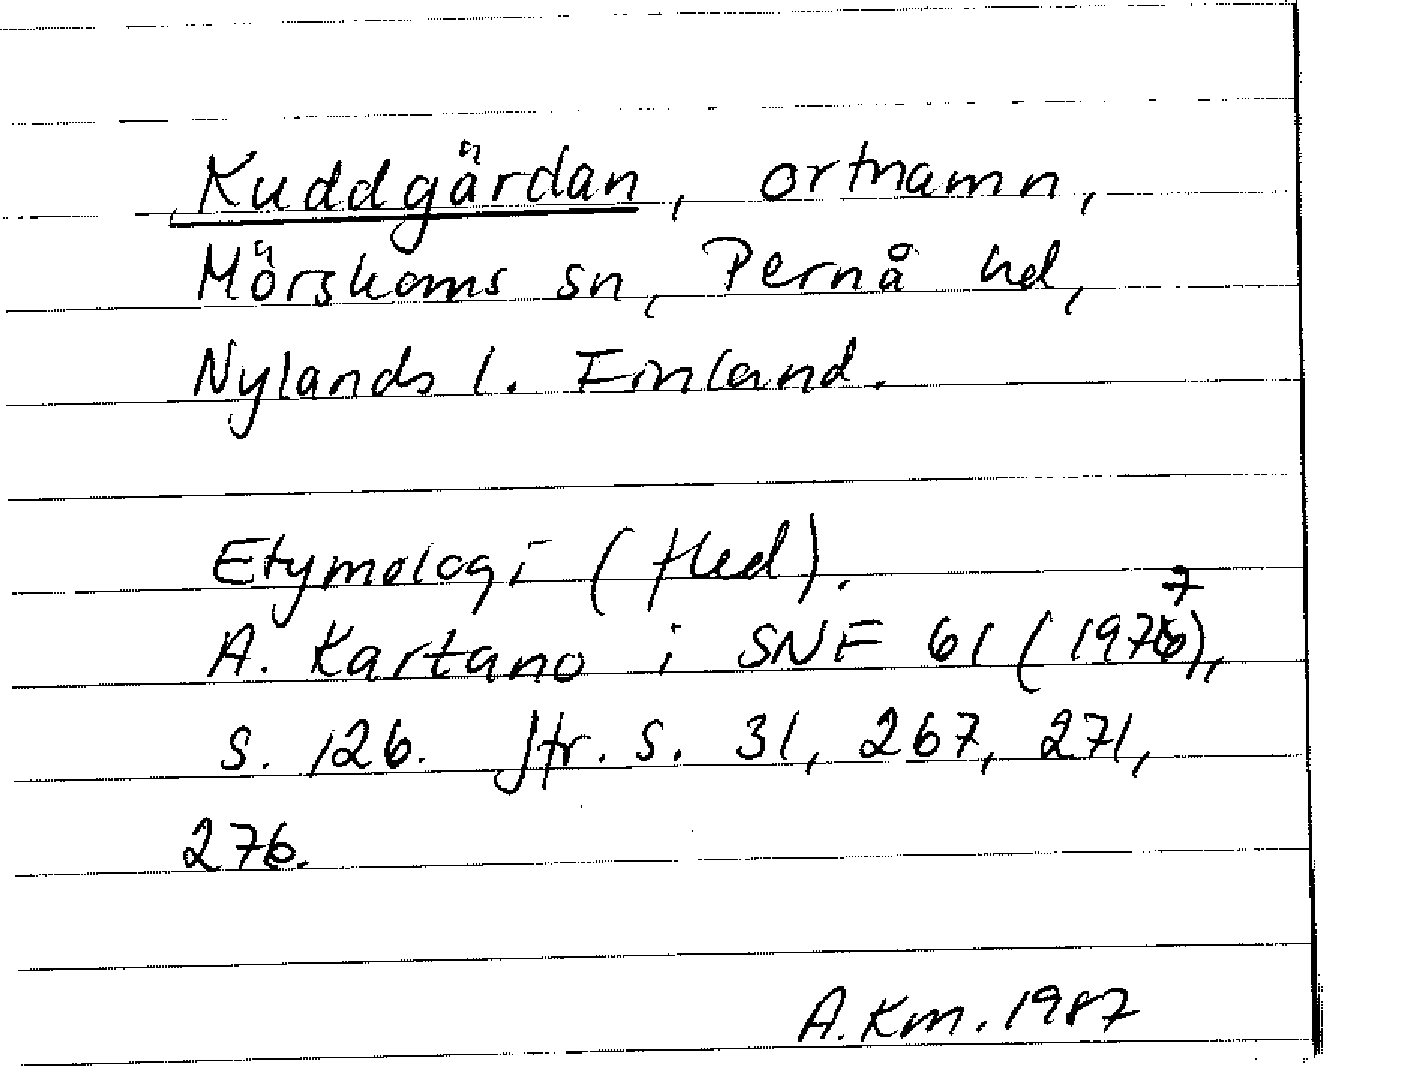 Kuddgärdan, ortnamn,
Mörskoms sn, Pernå hd,
Nylands l. Finland.
Etymologi (fled).
A. Kartano i SNF 61 (1977),
s. 126. Jfr. s. 31, 267, 271,
276.
A.Km. 1987